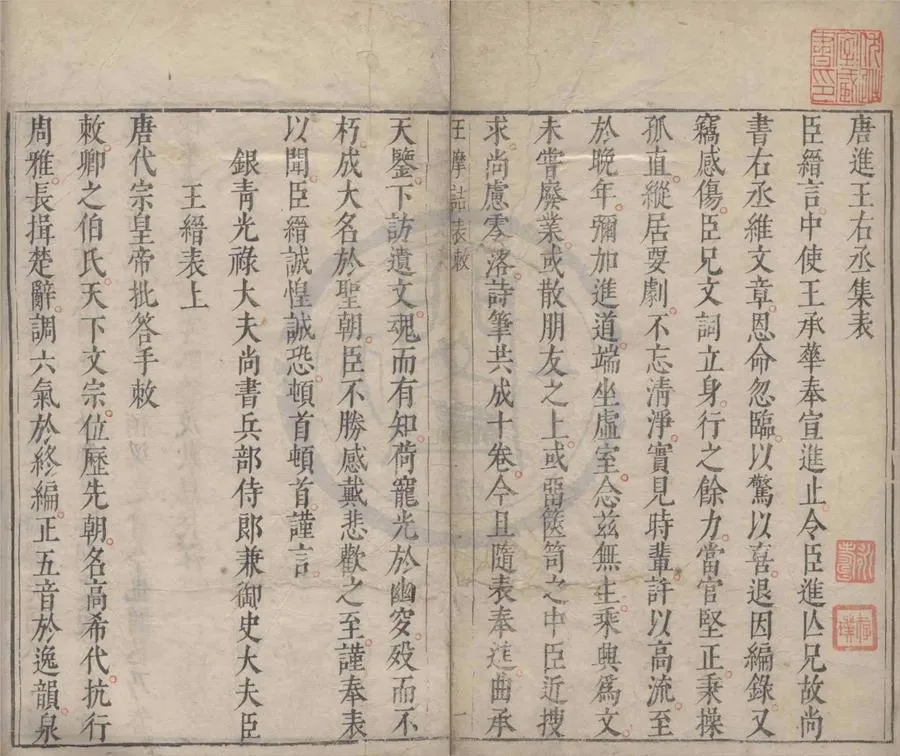 唐進王右丞集表
臣縉言中使王承華奉宣進止令臣進亾兄故尚
書右丞維文章恩命忽臨以驚以喜退因編錄又
竊感傷臣兄文詞立身行之餘力當官堅正秉操
孤直縱居要劇不忘清淨實見時輩許以高流至
於晚年彌加進道端坐虛室念茲無生乘興爲文
未嘗廢業或散朋友之上或畱篋笥之中臣近搜
求尚慮零落詩筆共成十卷今且隨表奉進曲承
王摩詰表敕 一
天鑒下訪遺文魂而有知荷寵光於幽穸歿而不
朽成大名於聖朝臣不勝感戴悲歡之至謹奉表
以聞臣縉誠惶誠恐頓首頓首謹言
銀青光祿大夫尚書兵部侍郎兼御史大夫臣
王縉表上
唐代宗皇帝批答手敕
敕卿之伯氏天下文宗位歷先朝名高希代抗行
周雅長揖楚辭調六氣於終編正五音於逸韻泉